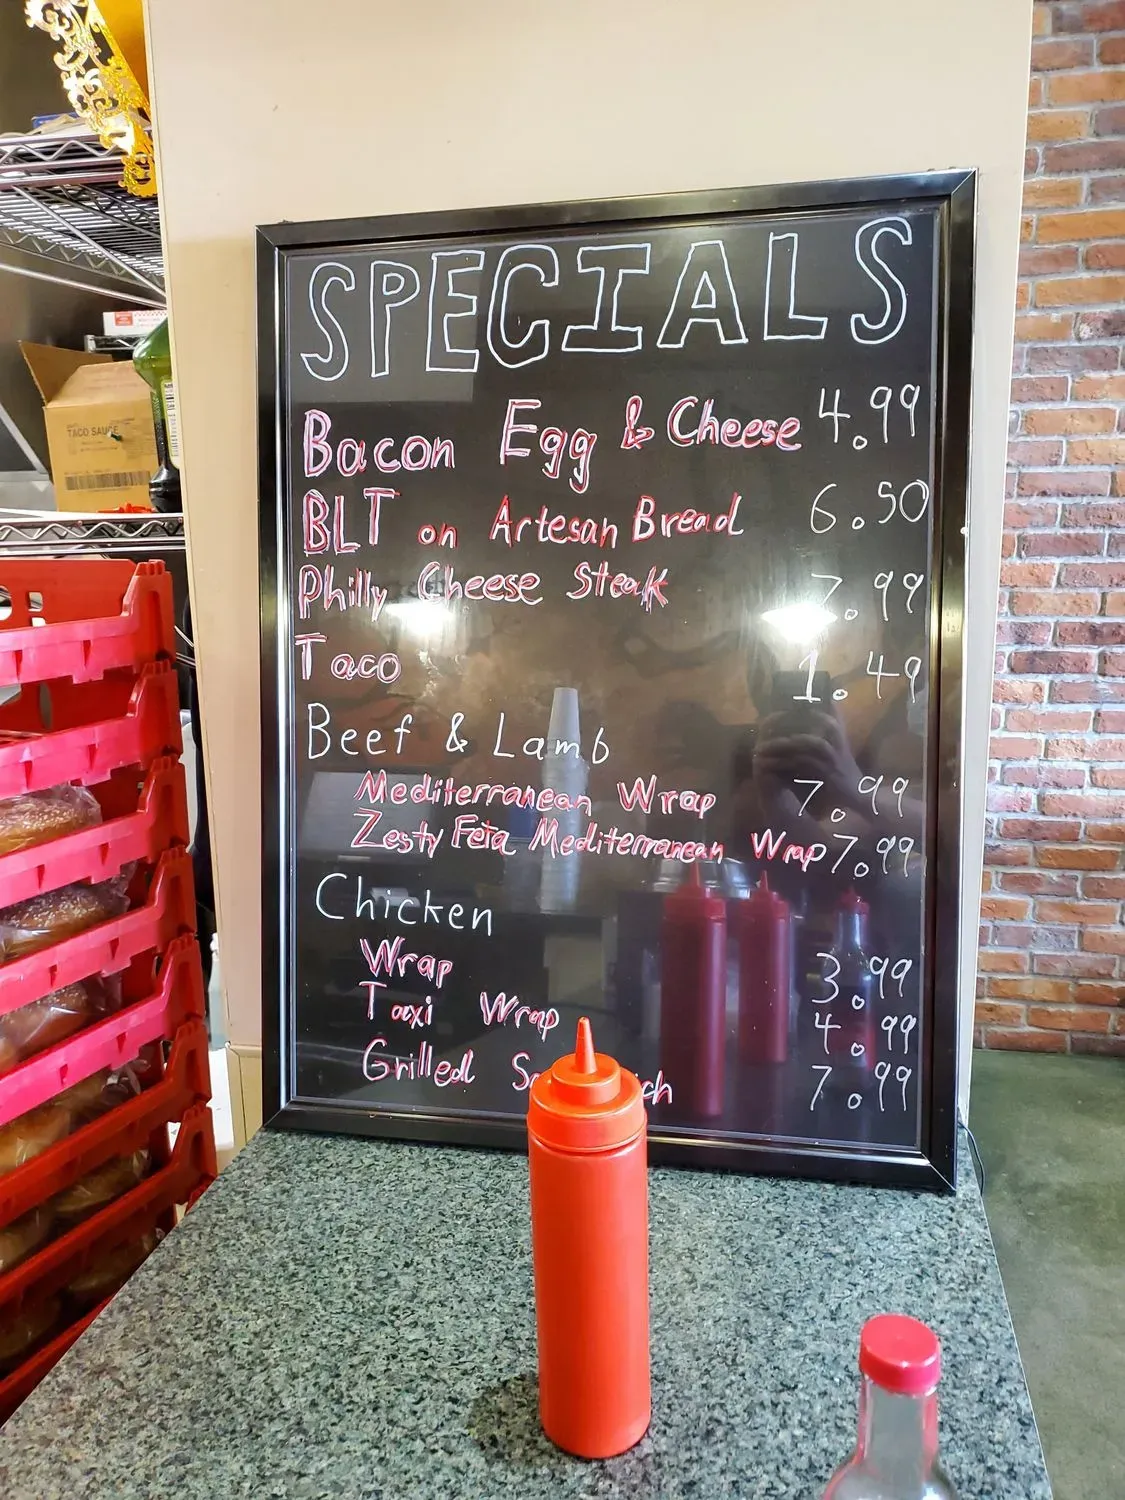 SPECIALS
Bacon Egg & Cheese 4.99
BLT on Artesan Bread 6.50
Philly Cheese Steak 7.99
Taco 1.49
Beef & Lamb
Mediterranean Wrap 7.99
Zesty Feta Mediterranean Wrap 7.99
Chicken
Wrap 3.99
Taxi Wrap 4.99
Grilled 7.99
TACO SAUCE